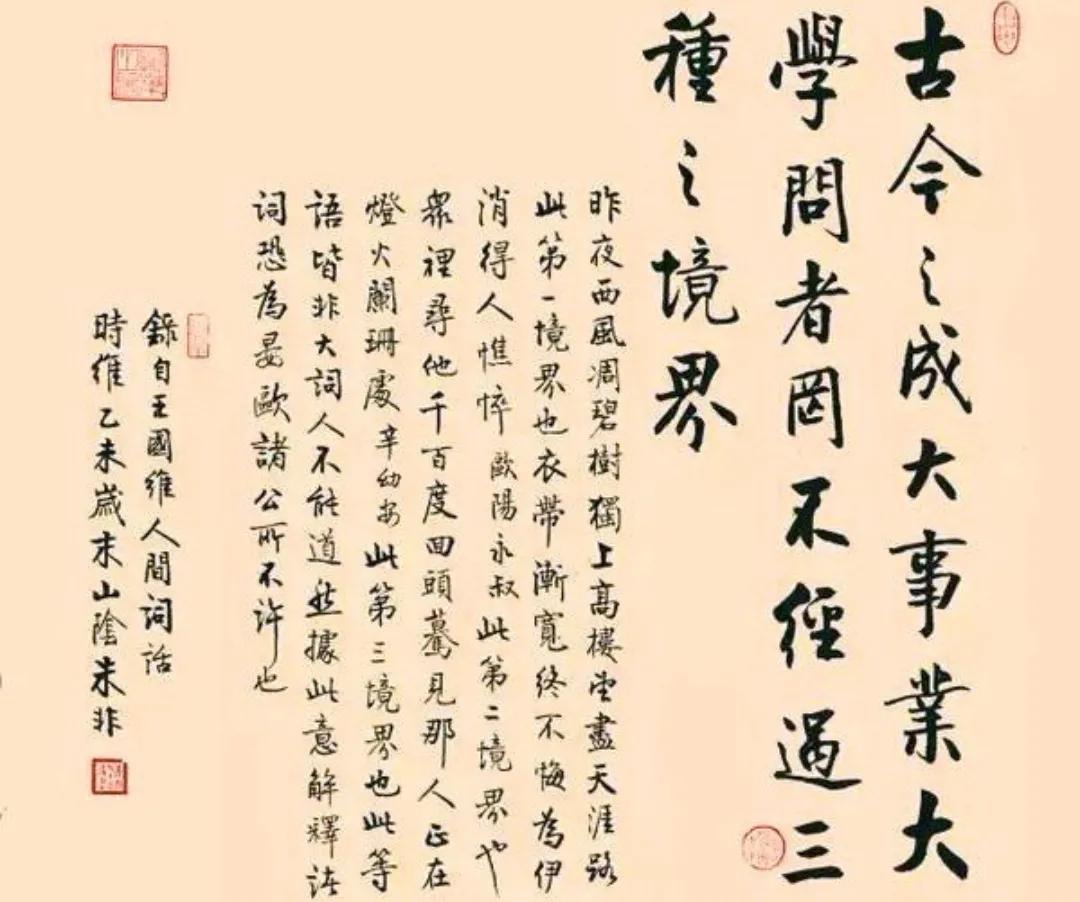 古今之成大事業大
學問者罔不經過三
種之境界
昨夜西風凋碧樹獨上高樓望盡天涯路
此第一境界也衣帶漸寬終不悔為伊
消得人憔悴歐陽永叔此第二境界也
眾裡尋他千百度回頭驀見那人正在
燈火闌珊處辛幼安此第三境界也此等
語皆非大詞人不能道然據此意解釋諸
詞恐為晏歐諸公所不許也
錄自王國維人間詞話
時維乙未歲末山陰朱非